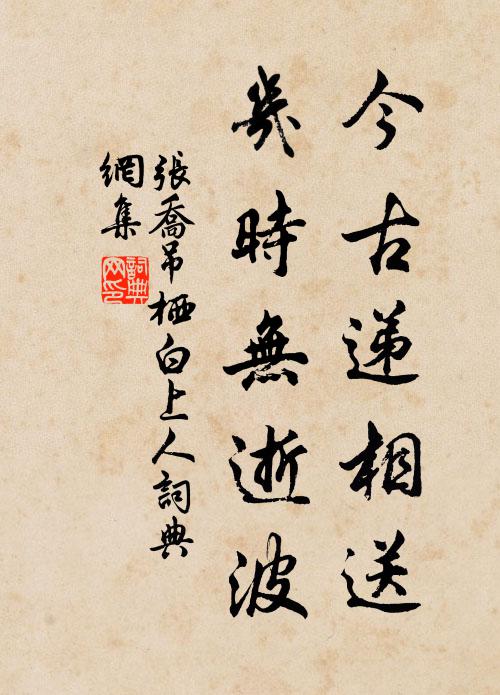 今古递相送
幾時無逝波
張喬吊栖白上人詞典
網集
詞典
网印